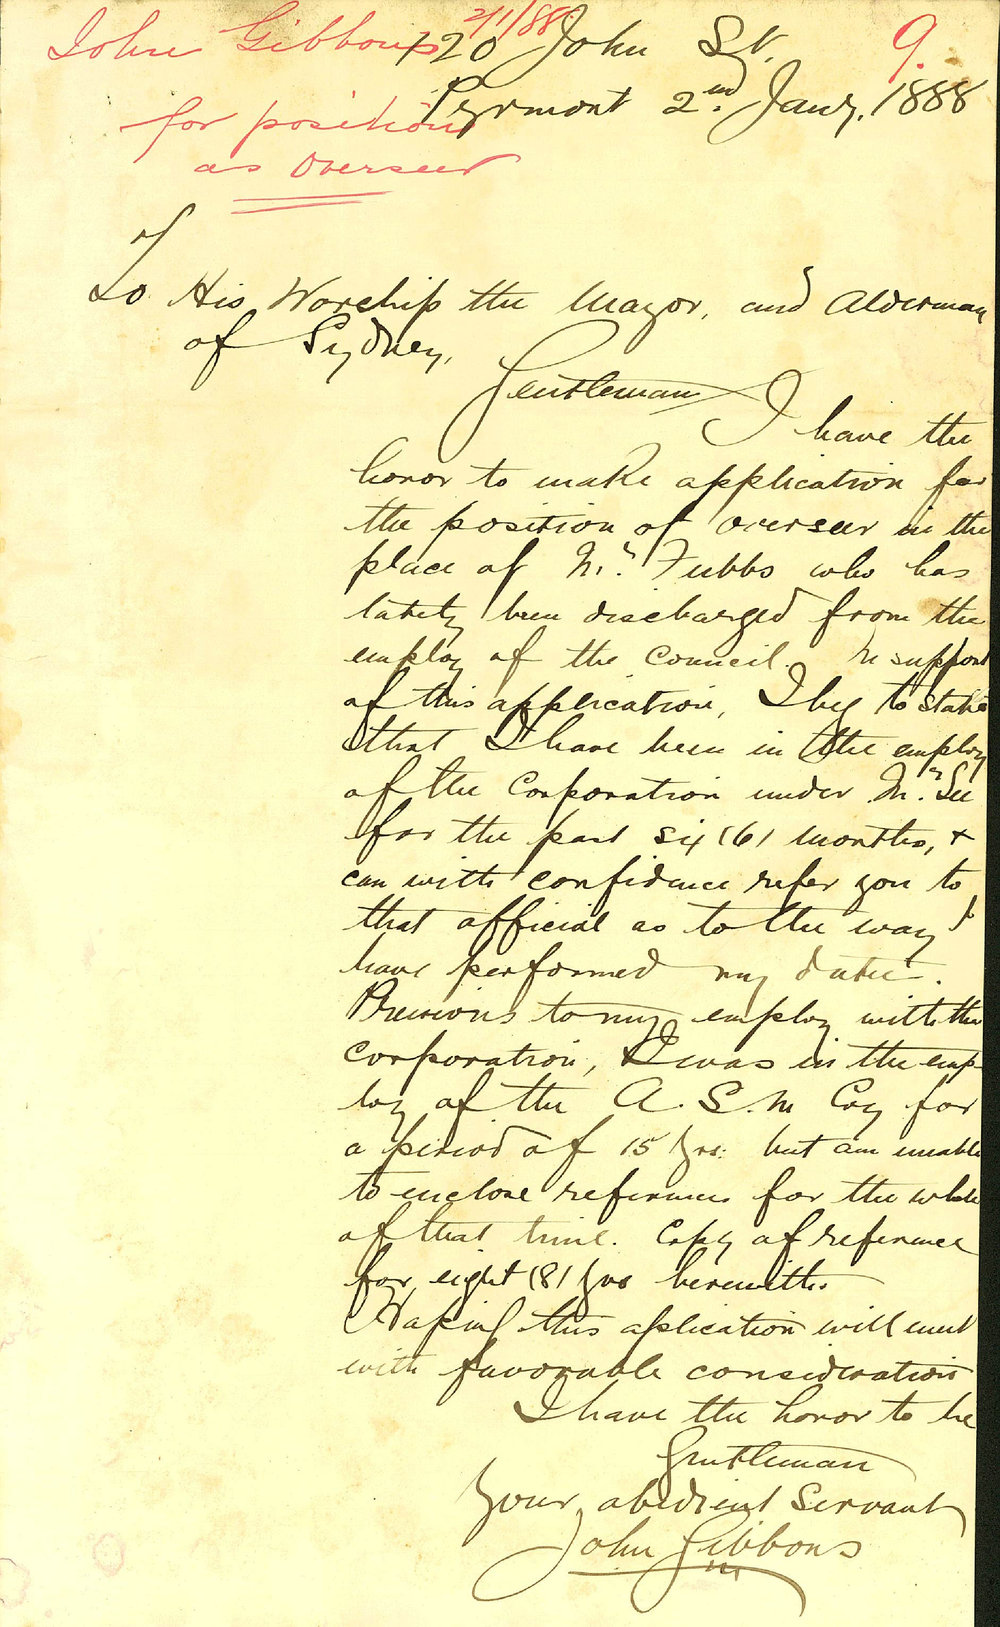 John Gibbons 2/1/88
for position
as Overseer
9.
120 John St.
Pyrmont 2nd Jany. 1888
To His Worship the Mayor, and Alderman
of Sydney,
Gentleman
I have the
honor to make application for
the position of overseer in the
place of Mr. Tubbs who has
lately been discharged from the
employ of the Council. In support
of this application, I beg to state
that I have been in the employ
of the Corporation under Mr. Lee
for the past six (6) months, &
can with confidence refer you to
that official as to the way I
have performed my duties.
Previous to my employ with the
corporation, I was in the emp
loy of the A. S. N Coy for
a period of 15 yrs: but am unable
to enclose references for the whole
of that time. Copy of reference
for eight (8) yrs herewith.
Hoping this application will meet
with favorable consideration
I have the honor to be
Gentleman
Your obedient Servant
John Gibbons